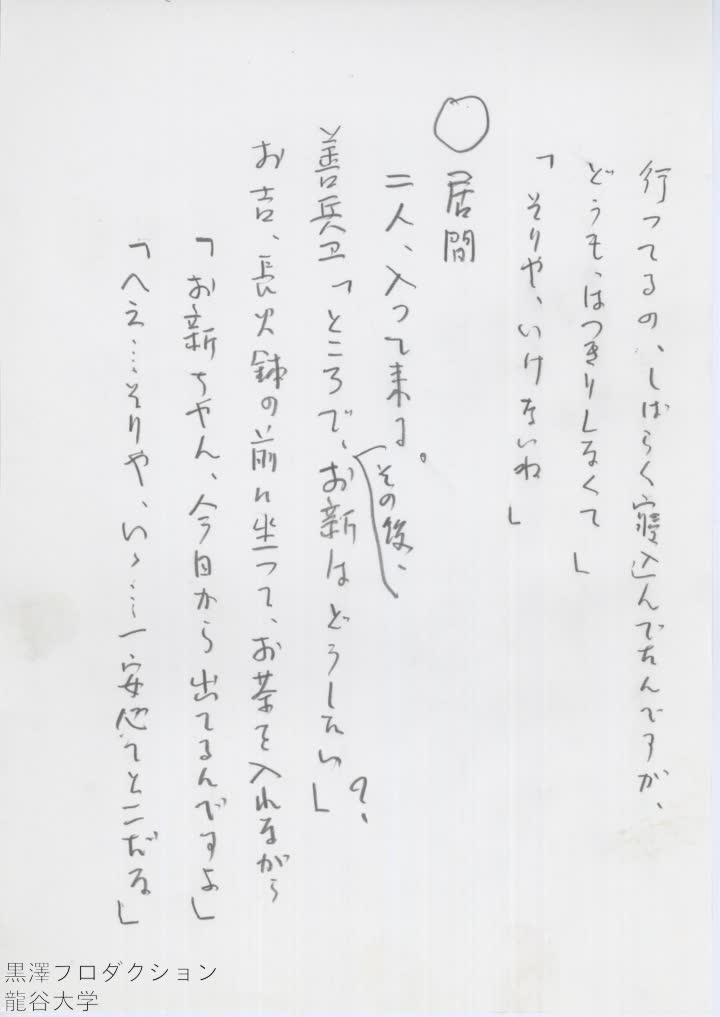 行ってるの、しばらく寝込んでたんですが、
どうも、はっきりしなくて」
「そりゃ、いけないね」
○居間
二人、入って来る。
善兵卫「ところで、その後、お新はどうしたい」?
お吉、長火鉢の前に坐って、お茶を入れながら
「お新ちゃん、今日から出てるんですよ」
「へえ…そりゃ、いゝ…一安心てとこだな」
黒澤プロダクション
龍谷大学